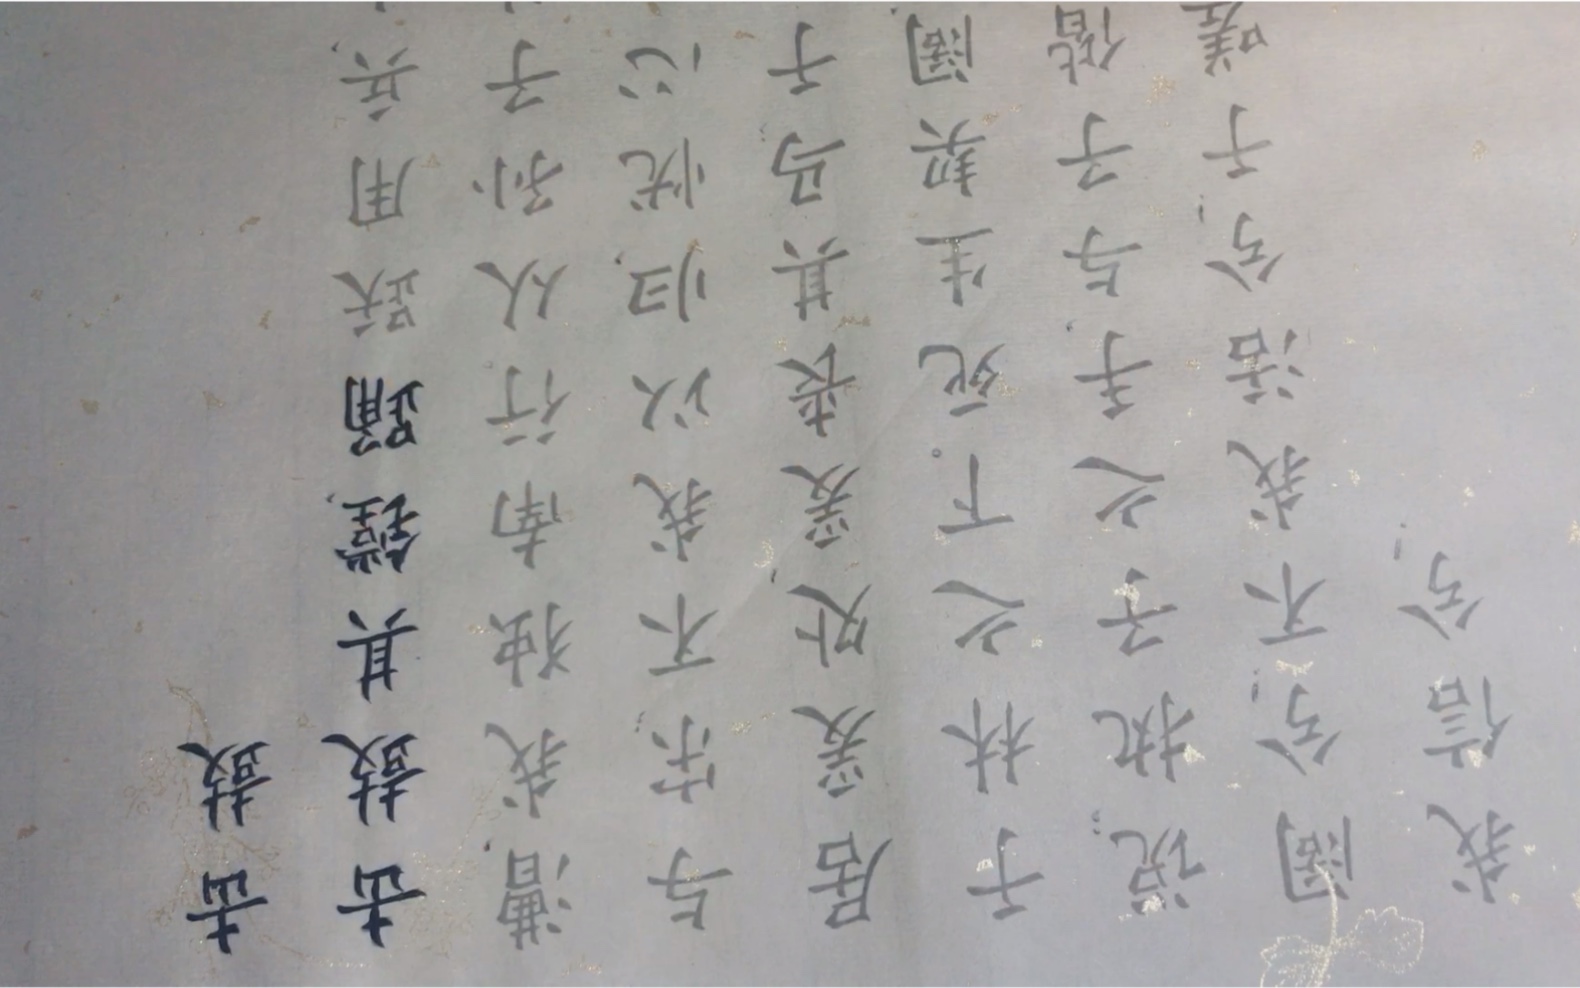 击鼓
击鼓其镗，踊跃用兵，
漕，我独南行从孙子
与宋，不我以归，忧心
居爰处，爰丧其马，于
于林之下。死生契阔，
说；执子之手，与子偕
阔兮！不我活兮！于嗟
我信兮！